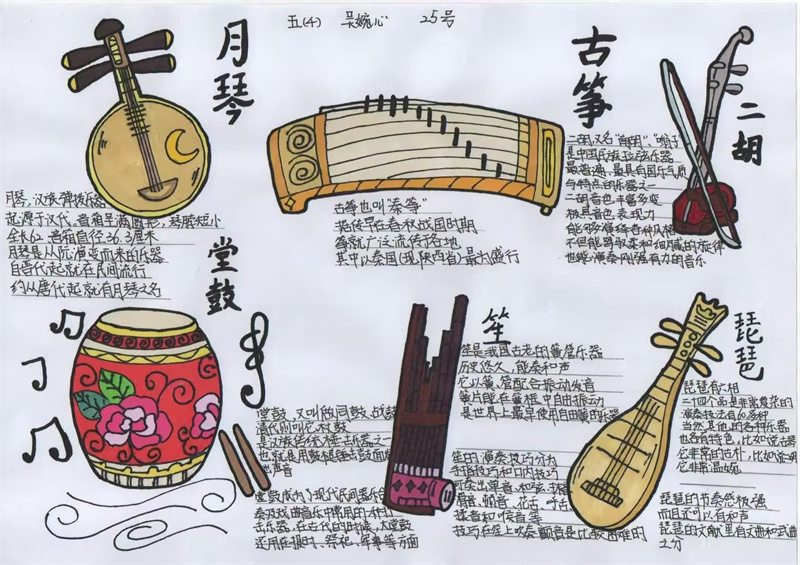 五(4) 吴婉心 25号
月琴
月琴,汉族弹拨乐器
起源于汉代,音箱呈满圆形,琴脖短小
全长62 音箱直径36.3厘米
月琴是从阮演变而来的乐器
自晋代起就在民间流行
约从唐代起就有月琴之名
古筝
古筝也叫"秦筝"
据传早在春秋战国时期
筝就广泛流传各地
其中以秦国(现陕西省)最为盛行
二胡
二胡,又名"南胡"、"嗡子"
是中国民族拉弦乐器
最普遍、最具有国乐气质
与特点的乐器之一
二胡音色丰富多变
极具音色表现力
能够演绎各种风格
不但能驾驭柔和细腻的旋律
也能演奏刚强有力的音乐
堂鼓
堂鼓,又叫做同鼓、战鼓
清代则叫它杖鼓
是汉族传统打击乐器之一
也就是用鼓槌锤击鼓面
出声音
堂鼓成为了现代民间器乐
奏及戏曲音乐中常用的一种打
击乐器,在古代的时候,大堂鼓
还用在报时、祭祀、军事等方面
笙
笙是我国古老的簧管乐器
历史悠久,能奏和声
它以簧、管配合振动发音
簧片能在簧框中自由振动
是世界上最早使用自由簧的乐器
笙的演奏技巧分为
手指技巧和口内技巧
能奏出单音、和弦
滑音、颤音、花舌、呼舌
揉音和喉音等
技巧在笙上吹奏颤音是比较困难的
琵琶
琵琶有六相
二十四个品是非常复杂的
演奏技法有60多种
当然,其他的各种乐器
也各有特色,比如说古琴
它非常的古朴,比如说
它非常温婉
琵琶的节奏感极强
而且还可以有和声
琵琶的文献里有文曲和武曲
之分